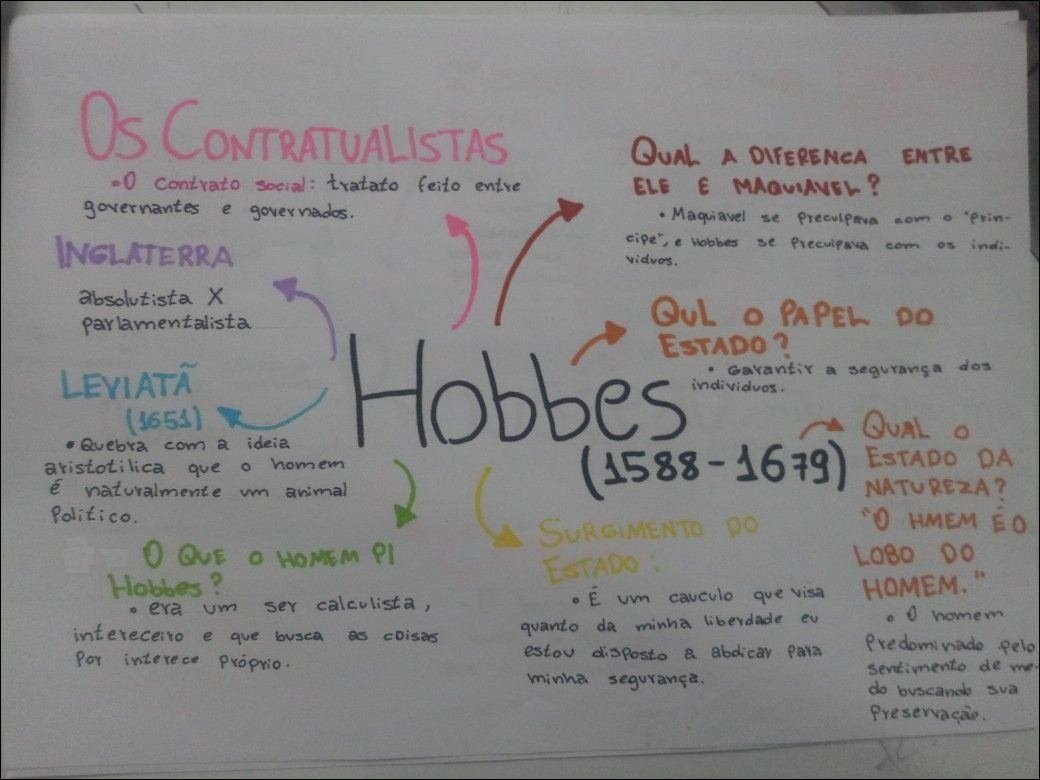 OS CONTRATUALISTAS
• O contrato social: tratato feito entre
governantes e governados.
INGLATERRA
absolutista X
parlamentalista
LEVIATÃ
(1651)
• Quebra com a ideia
aristotilica que o homem
é naturalmente um animal
Político.
O QUE O HOMEM P/
Hobbes?
• era um ser calculista,
intereceiro e que busca as coisas
Por interece Próprio.
Hobbes
(1588-1679)
QUAL A DIFERENCA ENTRE
ELE E MAQUIAVEL?
• Maquiavel se Preculpava com o "Prin-
cipe", e Hobbes se Preculpava com os indi-
viduos.
QUL O PAPEL DO
ESTADO?
• Garantir a segurança dos
individuos.
SURGIMENTO DO
ESTADO:
• É um cauculo que visa
quanto da minha liberdade eu
estou disposto a abdicar para
minha segurança.
QUAL O
ESTADO DA
NATUREZA?
"O HMEM É O
LOBO DO
HOMEM."
• O homem
Predominado pelo
sentimento de me-
do buscanob sua
Preservação.